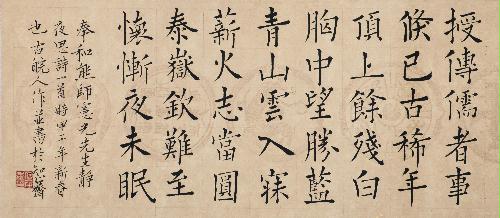 授傳儒者事
倏已古稀年
頂上餘殘白
胸中望勝藍
青山雲入寐
薪火志當圓
泰嶽欽難至
懷慚夜未眠
奉和熊師憲光先生靜
夜思諱一首時甲二年新春
也古皖人作並書於知齋